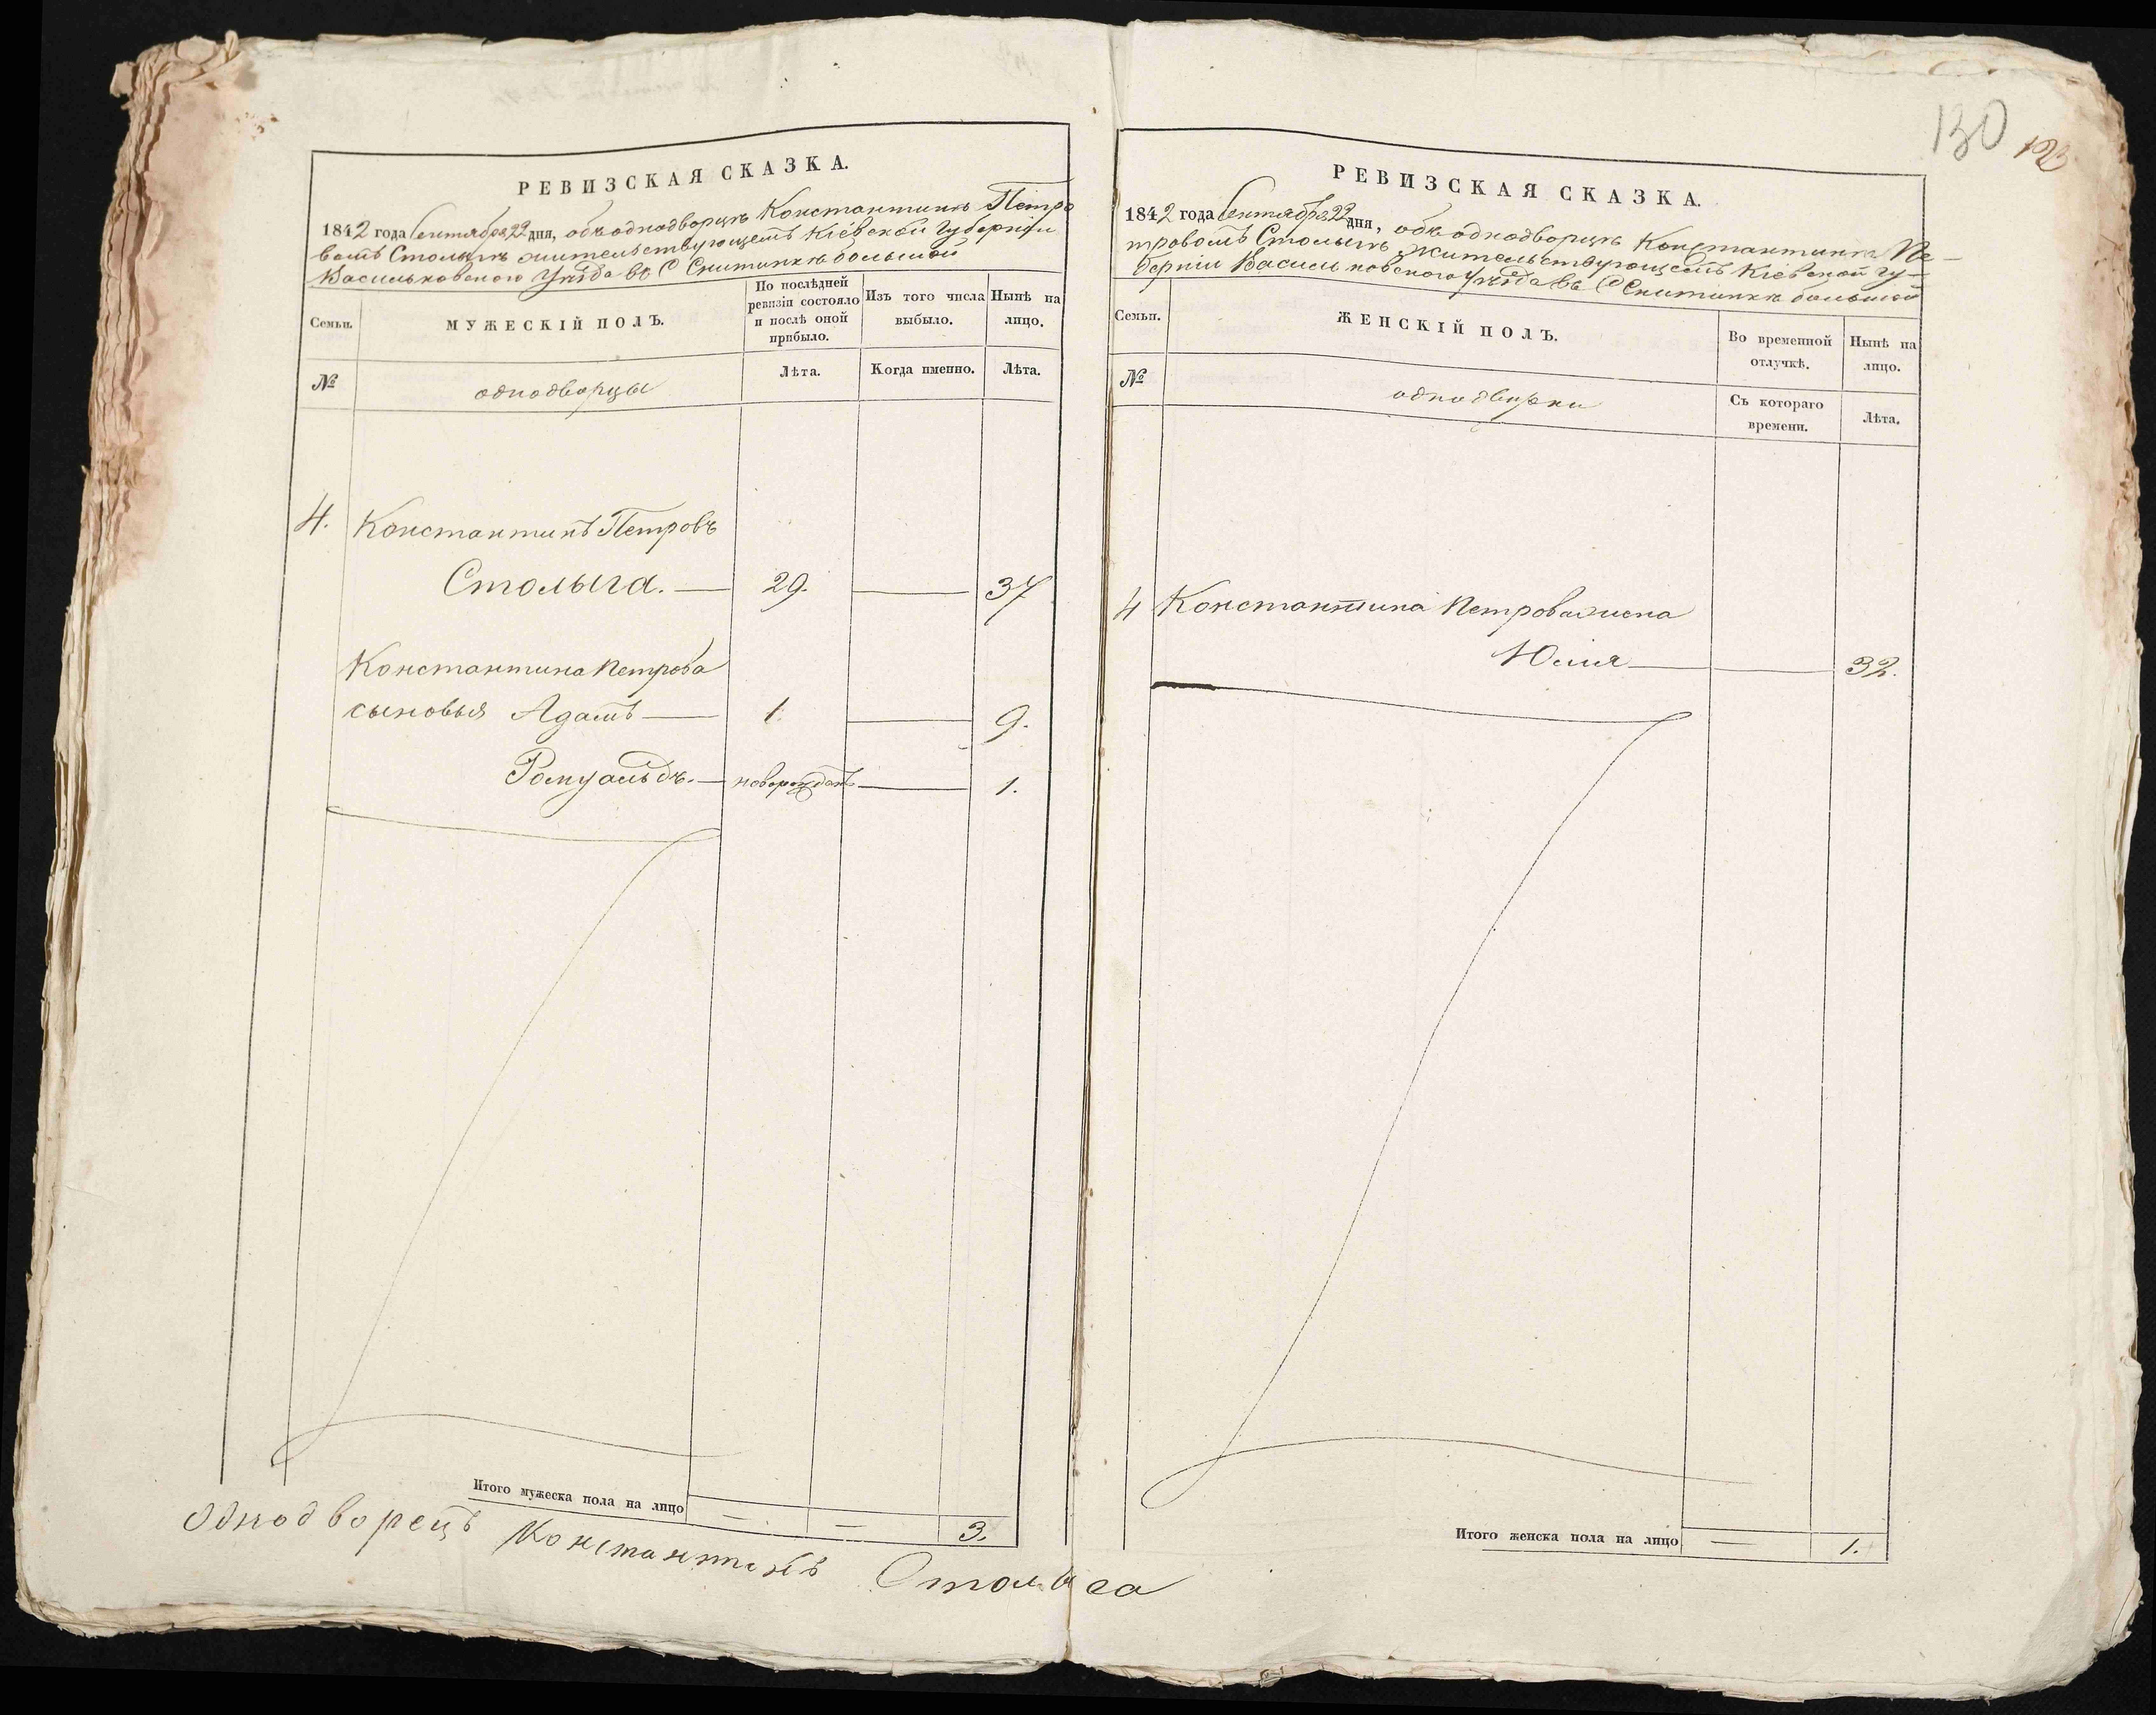 130 123
РЕВИЗСКАЯ СКАЗКА.
1842 года Сентября 22 дня, объ однодворцѣ Константинѣ Петро
вомъ Столыгѣ жительствующемъ Кіевской Губерніи
Васильковскаго Уѣзда въ С Снитинкѣ большой
Семьи.
МУЖЕСКІЙ ПОЛЪ.
По послѣдней
ревизіи состояло
и послѣ оной
прибыло.
Изъ того числа
выбыло.
Нынѣ на
лицо.
№
однодворцы
Лѣта.
Когда именно.
Лѣта.
4. Константинъ Петровъ
Столыга. — 29. — 37
Константина Петрова
сыновья Адамъ — 1. — 9.
Ромуальдъ. — новорожденъ — 1.
Итого мужеска пола на лицо — . — 3.
Однодворецъ Константинъ Столыга
РЕВИЗСКАЯ СКАЗКА.
1842 года Сентября 22 дня, объ однодворцѣ Константинѣ Пе-
тровомъ Столыгѣ жительствующемъ Кіевской Гу-
берніи Васильковскаго Уѣзда въ С Снитинкѣ большой
Семьи.
ЖЕНСКІЙ ПОЛЪ.
Во временной
отлучкѣ.
Нынѣ на
лицо.
№
однодворки
Съ котораго
времени.
Лѣта.
4 Константина Петрова жена
Юлія — — 32.
Итого женска пола на лицо — 1.